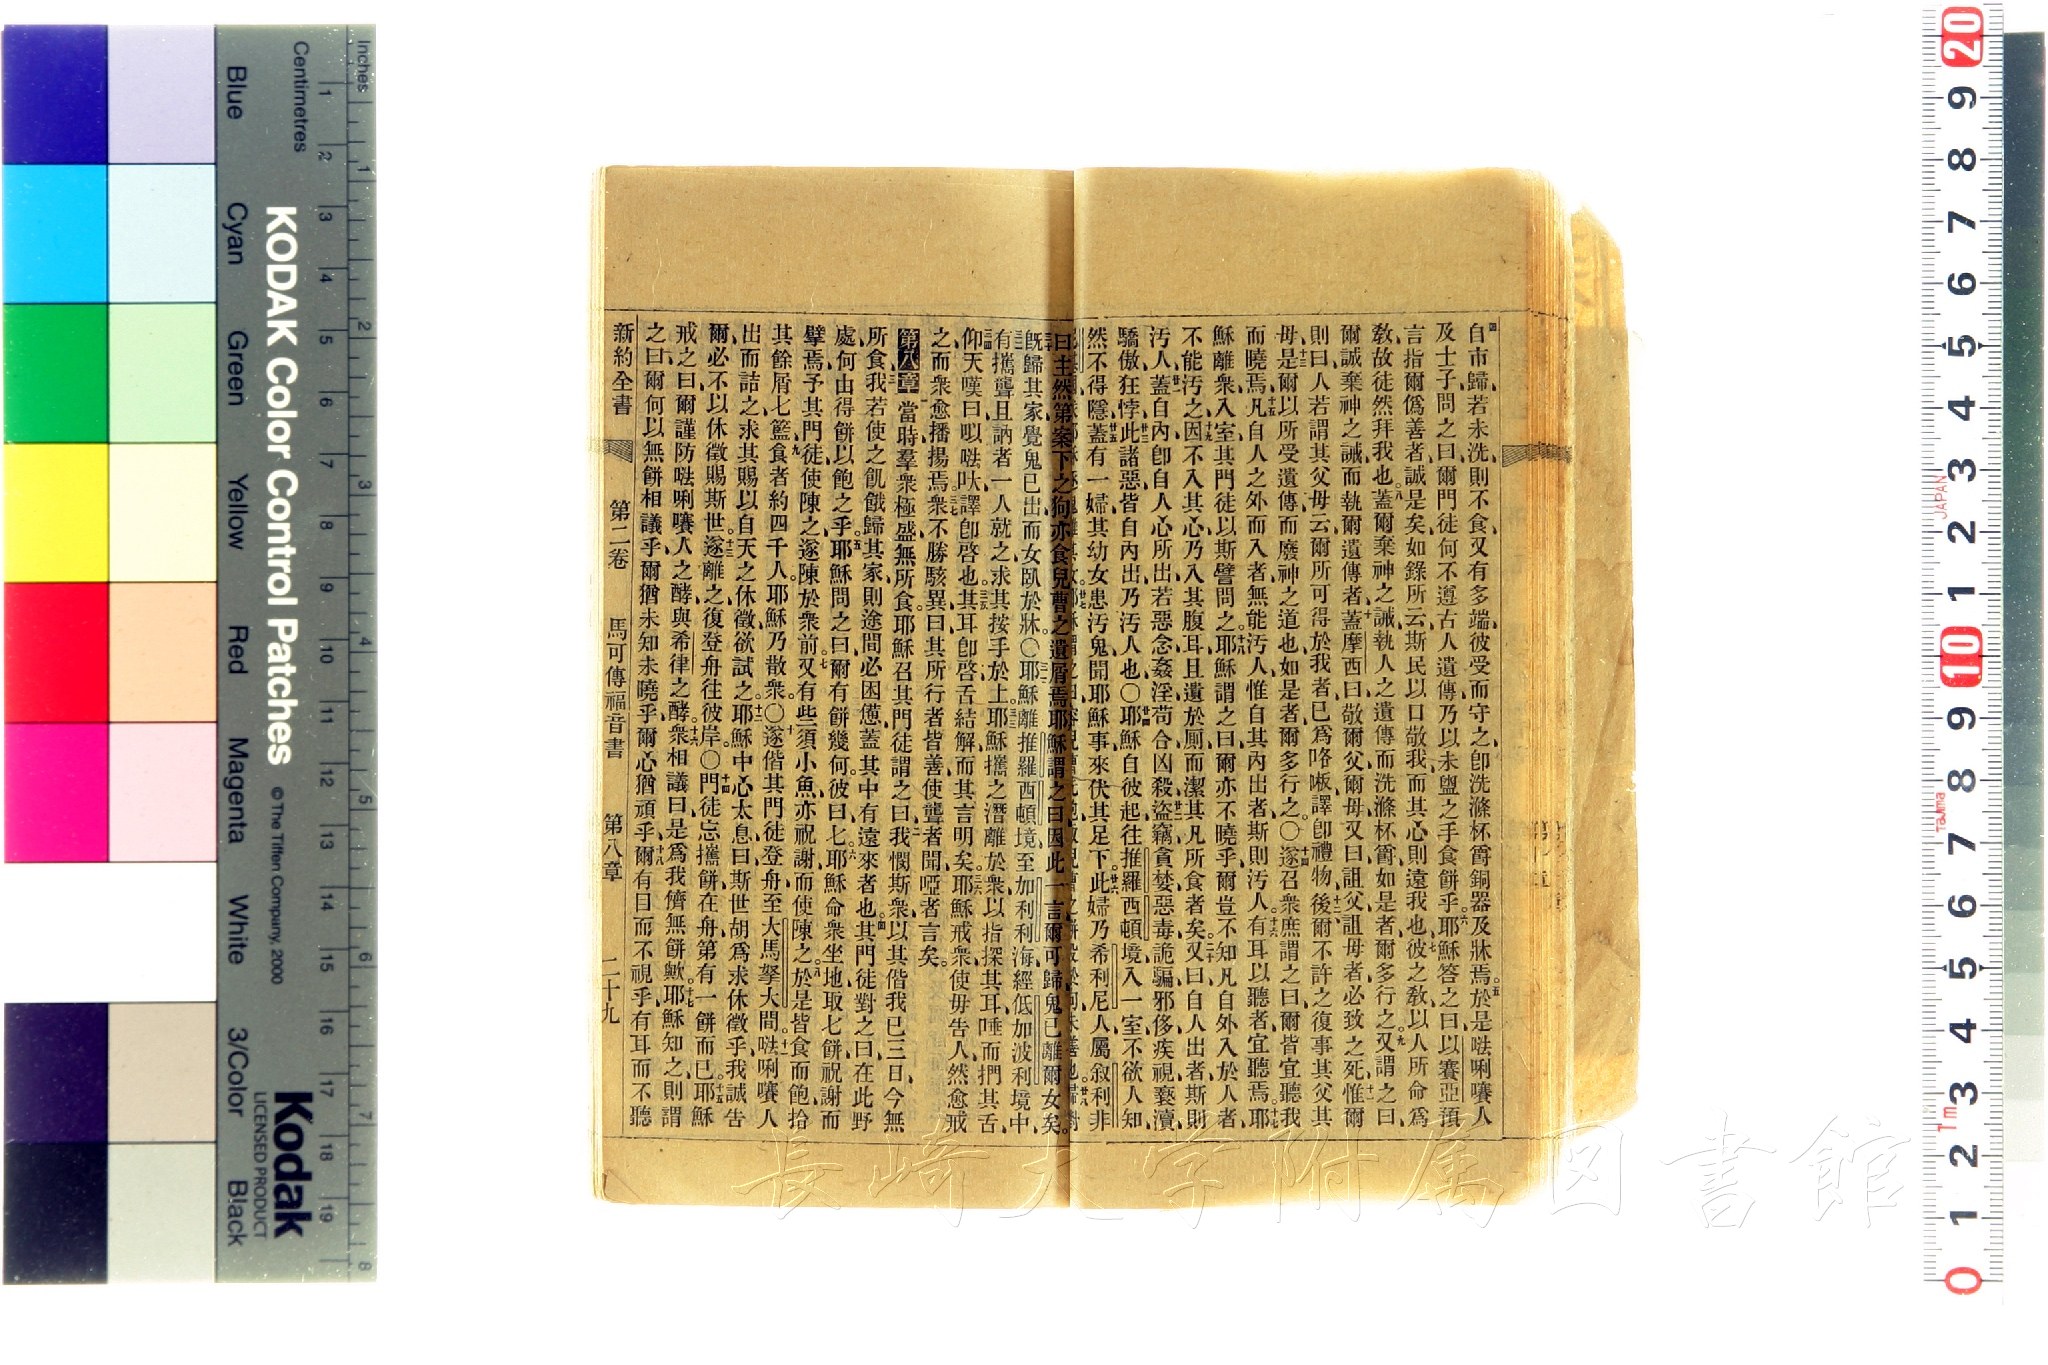 自市歸、若未洗則不食、又有多端、彼受而守之、卽洗滌杯斝銅器及牀焉。五於是𠵽唎㘔人
及士子問之曰、爾門徒何不遵古人遺傳、乃以未盥之手食餅乎。六耶穌答之曰、以賽亞預
言指爾僞善者、誠是矣、如錄所云、斯民以口敬我、而其心則遠我也。七彼之敎、以人所命爲
敎、故徒然拜我也。八蓋爾棄神之誡、執人之遺傳、而洗滌杯斝、如是者、爾多行之。九又謂之曰、
爾誠棄神之誡、而執爾遺傳者、十蓋摩西曰、敬爾父爾母、又曰、詛父詛母者、必致之死。十一惟爾
則曰、人若謂其父母云、爾所可得於我者、已爲咯𠸎、譯卽禮物、十二後爾不許之復事其父其
母、十三是爾以所受遺傳、而廢神之道也、如是者、爾多行之。〇十四遂召衆庶、謂之曰、爾皆宜聽我
而曉焉。十五凡自人之外而入者、無能汚人、惟自其內出者、斯則汚人。十六有耳以聽者、宜聽焉。十七耶
穌離衆入室、其門徒以斯譬問之、十八耶穌謂之曰、爾亦不曉乎、爾豈不知凡自外入於人者、
不能汚之、十九因不入其心、乃入其腹耳、且遺於厠、而潔其凡所食者矣。二十又曰、自人出者、斯則
汚人、廿一蓋自內、卽自人心所出、若惡念、姦淫、苟合、凶殺、廿二盜竊、貪婪、惡毒、詭騙、邪侈、疾視、褻瀆、
驕傲、狂悖、廿三此諸惡皆自內出、乃汚人也。〇廿四耶穌自彼起、往推羅西頓境、入一室、不欲人知、
然不得隱、廿五蓋有一婦、其幼女患汚鬼、聞耶穌事、來伏其足下、廿六此婦乃希利尼人、屬叙利非
曰、主、然、第案下之狗、亦食兒曹之遺屑焉。耶穌謂之曰、因此一言、爾可歸、鬼已離爾女矣。
旣歸其家、覺鬼已出、而女臥於牀。〇耶穌離推羅西頓境、至加利利海、經低加波利境中、
有攜聾且訥者一人就之、求其按手於上、耶穌攜之潛離於衆、以指探其耳、唾而捫其舌、
仰天嘆曰、㕥㗭呔、譯卽啓也。其耳卽啓、舌結解、而其言明矣。耶穌戒衆、使毋告人、然愈戒
之、而衆愈播揚焉。衆不勝駭異曰、其所行者皆善、使聾者聞、啞者言矣。
第八章 當時羣衆極盛、無所食、耶穌召其門徒謂之曰、我憫斯衆、以其偕我已三日、今無
所食、我若使之飢餓歸其家、則途間必困憊、蓋其中有遠來者也。其門徒對之曰、在此野
處、何由得餅以飽之乎。耶穌問之曰、爾有餅幾何、彼曰、七、耶穌命衆坐地、取七餅、祝謝而
擘焉、予其門徒、使陳之、遂陳於衆前、又有些須小魚、亦祝謝而使陳之。於是皆食而飽、拾
其餘屑七籃、食者約四千人、耶穌乃散衆。〇遂偕其門徒登舟、至大馬拏大間、𠵽唎㘔人
出而詰之、求其賜以自天之休徵、欲試之、耶穌中心太息曰、斯世胡爲求休徵乎、我誠吿
爾、必不以休徵賜斯世、遂離之、復登舟往彼岸。〇門徒忘攜餅、在舟第有一餅而已、耶穌
戒之曰、爾謹防𠵽唎㘔人之酵、與希律之酵、衆相議曰、是爲我儕無餅歟、耶穌知之、則謂
之曰、爾何以無餅相議乎、爾猶未知未曉乎、爾心猶頑乎、爾有目而不視乎、有耳而不聽
新約全書 第二卷 馬可傳福音書 第八章 二十九
Inches
Centimetres
Blue Cyan Green Yellow Red Magenta White 3/Color Black
KODAK Color Control Patches © The Tiffen Company, 2000
Kodak
LICENSED PRODUCT
1 2 3 4 5 6 7 8 9 10 11 12 13 14 15 16 17 18 19
1 2 3 4 5 6 7 8
20 9 8 7 6 5 4 3 2 1 10 9 8 7 6 5 4 3 2 1 0
JAPAN
Tajima
Tm
長崎大学附属図書館